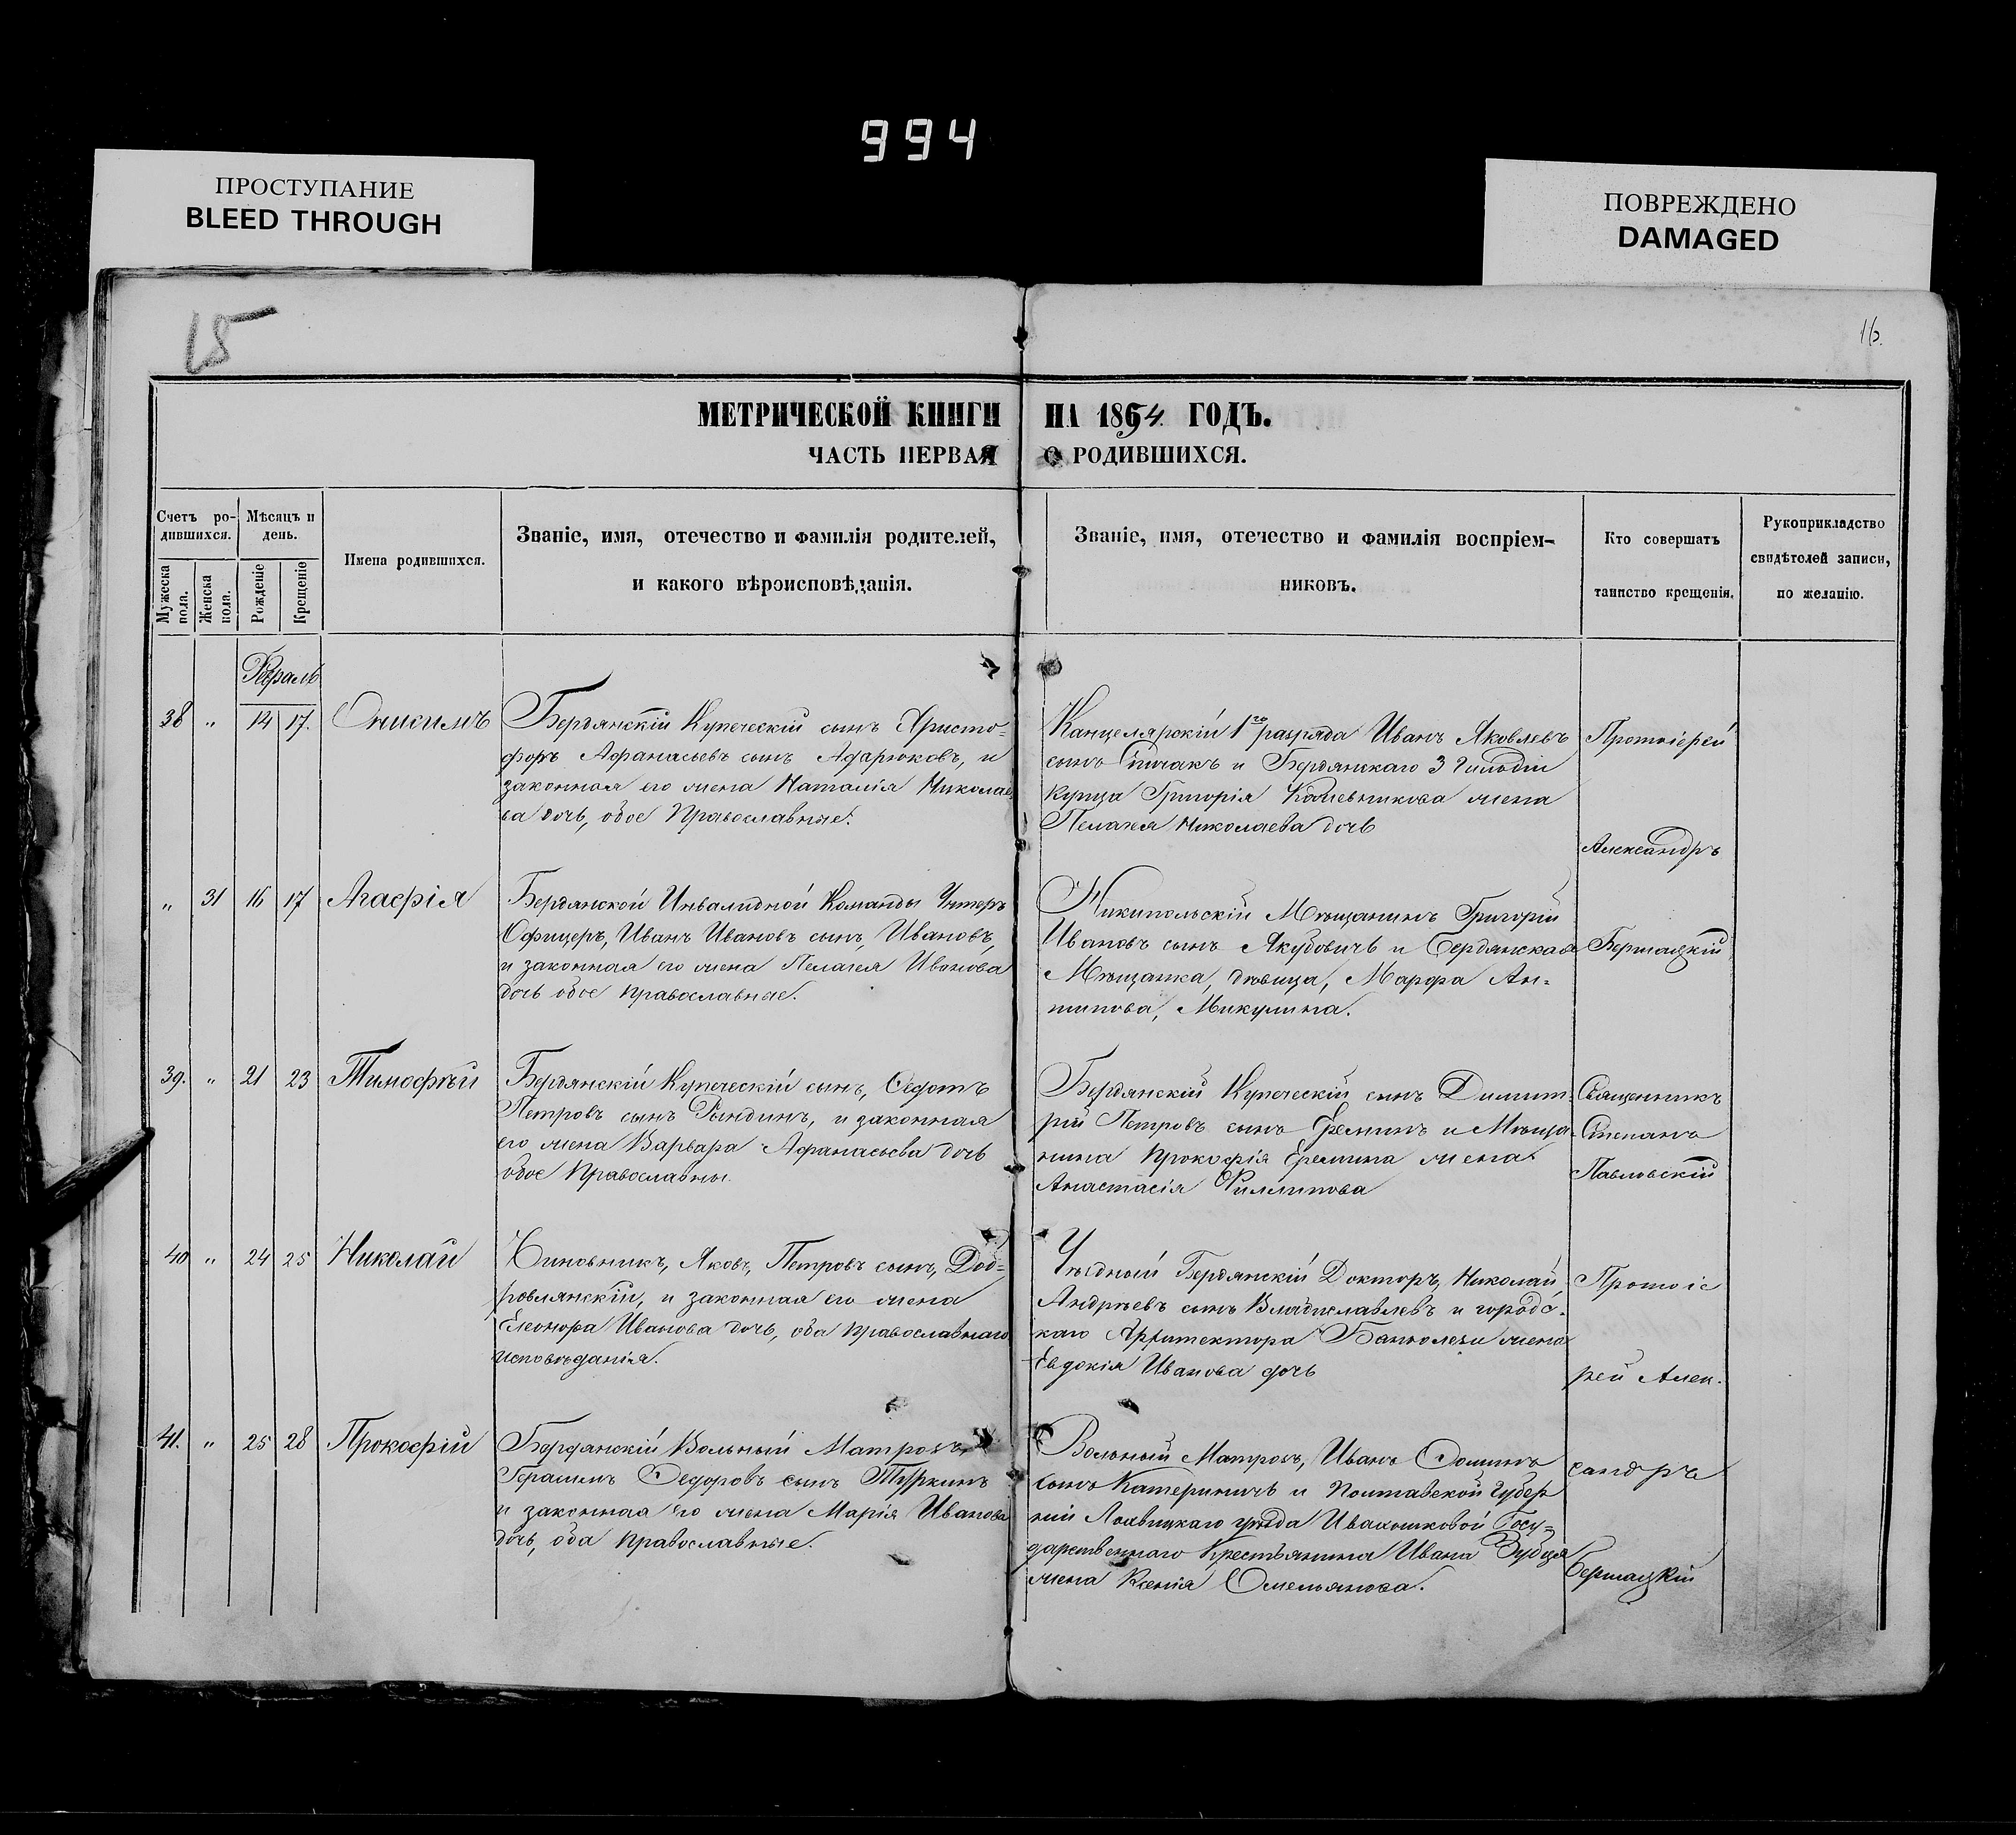 994
ПРОСТУПАНИЕ
BLEED THROUGH
ПОВРЕЖДЕНО
DAMAGED
15
16.
МЕТРИЧЕСКОЙ КНИГИ НА 1864. ГОДЪ.
ЧАСТЬ ПЕРВАЯ О РОДИВШИХСЯ.
Счетъ ро-
дившихся.
Мужеска
пола.
Женска
пола.
Мѣсяцъ и
день.
Рожденіе
Крещеніе
Имена родившихся.
Званіе, имя, отечество и фамилія родителей,
и какого вѣроисповѣданія.
Званіе, имя, отечество и фамилія воспріем-
никовъ.
Кто совершатъ
таинство крещенія.
Рукоприкладство
свидѣтолей записи,
по желанію.
Февраль
38 „ 14 17. Онисимъ
Бердянскій Купеческій сынъ Христо=
форъ Афанасьевъ сынъ Адарюковъ, и
законная его жена Наталія Николае
ва дочь, обое Православные.
Канцелярскій 1го разряда Иванъ Яковлевъ
сынъ Спичакъ и Бердянскаго 3 Гильдіи
купца Григорія Кожевникова жена
Пелагея Николаева дочь
Протоіерей
Александръ
„ 31 16 17 Агафія
Бердянской Инвалидной Команды Унтеръ
Офицеръ, Иванъ Ивановъ сынъ, Ивановъ,
и законная его жена Пелагея Иванова
дочь обое православные.
Никипольскій Мѣщанинъ Григорій
Ивановъ сынъ Якубовичъ и Бердянская
Мѣщанка, дѣвица, Марфа Ан=
типова, Микулина.
Бермацкій
39. „ 21 23 Тимофѣй
Бердянскій Купеческій сынъ, Федотъ
Петровъ сынъ Рындинъ, и законная
его жена Варвара Афанасьева дочь
обое Православны.
Бердянскій Купеческій сынъ Димит=
рій Петровъ сынъ Ереминъ и Мѣща-
нина Прокофія Еремина жена
Анастасія Филипова
Священникъ
Степанъ
Павловскій
40 „ 24 25 Николай
Чиновникъ, Яковъ, Петровъ сынъ, Доб=
ровлянскій, и законная его жена
Елеонора Иванова дочь, оба православнаго
исповѣданія.
Уѣздный Бердянскій Докторъ, Николай
Андреевъ сынъ Владиславлевъ и городс-
каго Архитектора жена
Евдокія Иванова дочь
Протоіе
рей Алек-
41. „ 25 28 Прокофій
Бердянскій Вольный Матросъ,
Герасимъ Федоровъ сынъ Туркинъ
и законная его жена Марія Иванова
дочь, оба православные.
Вольный Матросъ, Иванъ Фоминъ
сынъ Катериничъ и Полтавской Губер
ніи Лохвицкаго уѣзда Ивахниковой Госу=
дарственнаго Крестьянина Ивана Зубца
жена Ксенія Омельянова.
сандръ
Бермацкій